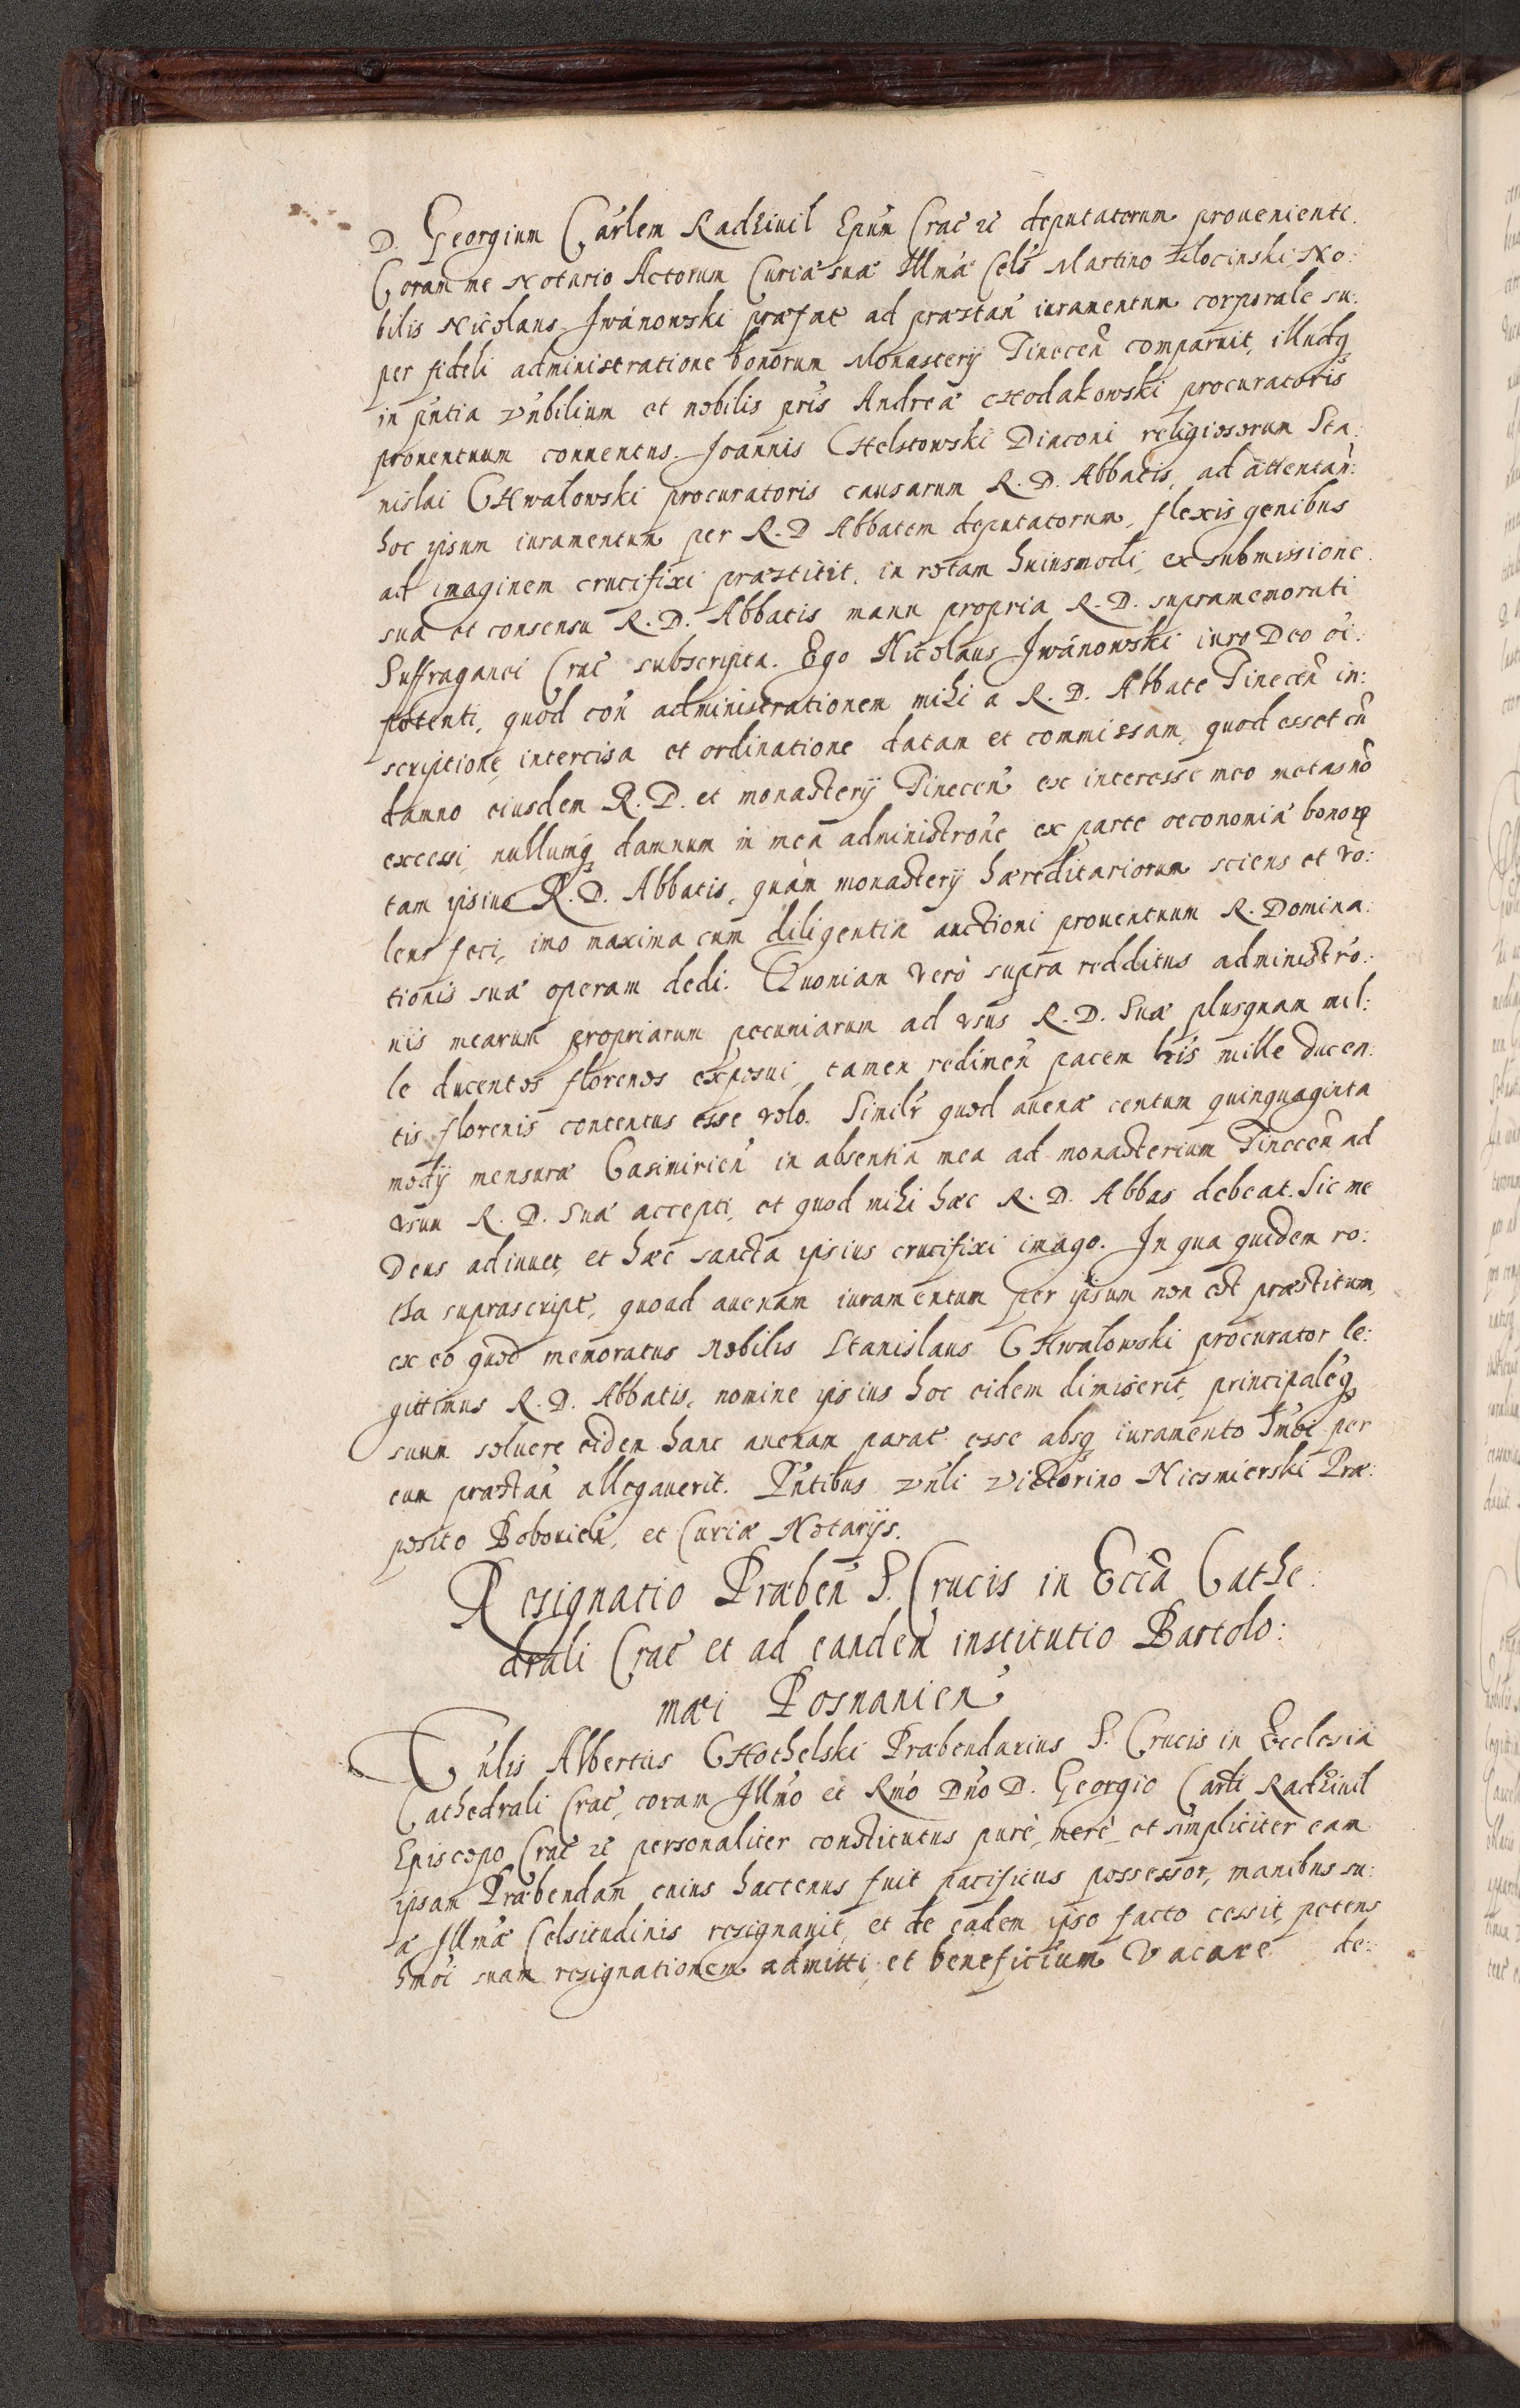 D. Georgium Carlem Radziuil Epūm Crac̄ ꝛc̄ deputatorum prouenienti.
Coram me Notario Actorum Curiæ suæ Illmæ Cels Martino Złocinski No:
bilis Nicolaus Iwánowski præfat̄ ad præstan̄ iuramentum corporale su:
per fideli administratione bonorum Monasterij Tinecen̄ comparuit, illudq̨
in pn̄tia vn̄bilium et nobilis prīs Andreæ CHodakowski procuratoris
prouentuum conuentus. Joannis CHelstowski Diaconi religiosorum Sta:
nislai CHwałowski procuratoris causarum R. D. Abbatis, ad attentan̄:
hoc ipsum iuramentum per R. D Abbatem deputatorum, flexis genibus
ad imaginem crucifixi præstitit. in rotam huiusmodi, ex submissione
sua et consensu R. D. Abbatis manu propria R. D. supramemorati
Suffraganei Crac̄ subscripta. Ego Nicolaus Iwánowski iuro Deo oī:
potenti, quod con̄ administrationem mihi a R. D. Abbate Tinecen̄ in:
scriptione, intercisa et ordinatione datam et commissam, quod esset cū
damno eiusdem R. D. et monasterij Tinecen̄ ex interesse meo metas nō
excessi, nullumq̨ damnum in mea administrōne ex parte oeconomiæ bonoꝝ
tam ipsius R. D. Abbatis, quàm monasterij hæreditariorum sciens et vo:
lens feci, imo maxima cum diligentia auctioni prouentuum R. Domina:
tionis suæ operam dedi. Quoniam verò supra redditus administrō:
nis mearum propriarum pecuniarum ad vsus R. D. Suæ plusquam mil:
le ducentos florenos exposui, tamen redimen̄ pacem his mille ducen:
tis florenis contentus esse volo. Similr̄ quod auenæ centum quinquaginta
modij mensuræ Casimirien̄ in absentia mea ad monasterium Tinecen̄ ad
vsum R. D. Suæ accepti, et quod mihi hæc R. D. Abbas debeat. Sic me
Deus adiuuet, et hæc sancta ipsius crucifixi imago. In qua quidem ro:
tha suprascript̄, quoad auenam iuramentum per ipsum non est præstitum,
ex eo quod memoratus Nobilis Stanislaus CHwałowski procurator le:
gittimus R. D. Abbatis, nomine ipsius hoc eidem dimiserit, principaleq̨
suum soluere eidem hanc auenam parat̄ esse absq̨ iuramento hmōi per
eum præstan̄ allegauerit. Pn̄tibus vn̄li Victorino Niesmierski Præ:
posito Bobouien̄, et Curiæ Notarijs.
Resignatio Præben̄ S. Crucis in Eccīa Cathe:
drali Crac̄ et ad eandem institutio Bartolo:
mæi Posnanien̄
Vn̄lis Albertus CHochelski Præbendarius S. Crucis in Ecclesia
Cathedrali Crac̄, coram Illmo et Rmo Dno D. Georgio Cardi Radziuil
Episcopo Crac̄ ꝛc̄ personaliter constitutus purè, merè, et simpliciter eam
ipsam Præbendam cuius hactenus fuit pacificus possessor, manibus su:
æ Illmæ Celsitudinis resignauit, et de eadem ipso facto cessit, petens
hmōi suam resignationem admitti, et beneficium vacare de: